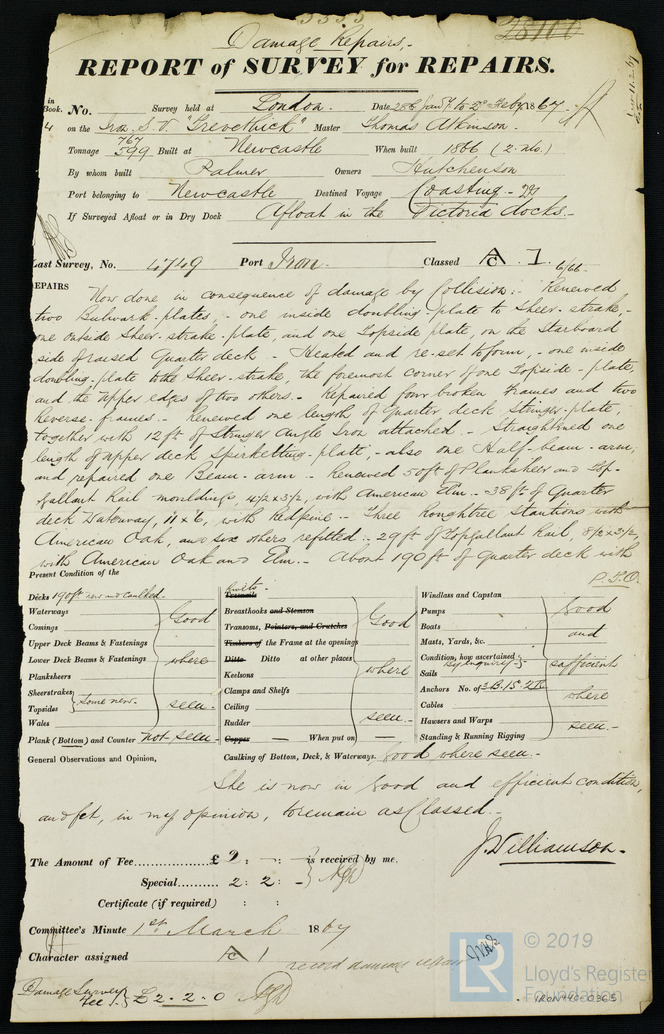 5555
28100
Damage Repairs.
REPORT of SURVEY for REPAIRS.
in Book. No. Survey held at London. Date 28th Jany to 2d Feby 1867
4 on the Iron S.V. "Trevethick" Master Thomas Atkinson.
Tonnage 767 599 Built at Newcastle When built 1866 (2 mo.)
By whom built Palmer Owners Hutchenson
Port belonging to Newcastle Destined Voyage Coasting
If Surveyed Afloat or in Dry Dock Afloat in the Victoria docks.
Last Survey, No. 4749 Port Iron Classed A C . 1. 6/66
REPAIRS Now done in consequence of damage by Collision:- Renewed
two Bulwark-plates, - one inside doubling-plate to Sheer-strake,-
one outside Sheer-strake-plate, and one Topside plate, on the Starboard
side of raised Quarter deck - Heated and re-set to form, - one inside
doubling-plate to the Sheer-strake, the foremost corner of one Topside-plate,
and the upper edges of two others. - Repaired four broken Frames and two
Reverse-frames. - Renewed one length of Quarter deck Stringer-plate,
together with 12 ft of Stringer Angle Iron attached. - Straightened one
length of upper deck Spirketting-plate, - also one Half-beam-arm,
and repaired one Beam-arm. - Renewed 50 ft of Planksheer and Top-
gallant Rail mouldings, 4/2 x 3/2, with American Elm. - 38 ft of Quarter
deck Waterway, 11 x 6, with Redpine - Three Roughtree Stantions with
American Oak, and six others refitted - 29 ft of Topgallant Rail, 8/2 x 3/2,
with American Oak and Elm. - About 190 ft of Quarter deck with
P.T.O.
Present Condition of the
Decks 190 ft new and caulked.
Waterways
Comings
Upper Deck Beams & Fastenings
Lower Deck Beams & Fastenings
Planksheers
Sheerstrakes
Topsides } some new.
Wales
Good
where
seen.
Plank (Bottom) and Counter not seen
Treenails
Breasthooks and Stemson
Transoms, Pointers, and Crutches
Timbers of the Frame at the openings
Ditto Ditto at other places
Keelsons
Clamps and Shelfs
Ceiling
Rudder
Good
where
seen.
Copper — When put on —
Windlass and Capstan
Pumps
Boats
Masts, Yards, &c.
Condition, how ascertained By enquiry
Sails
Anchors No. of 3 B. 1 S. 2 K
Cables
Hawsers and Warps
Standing & Running Rigging
Good
and
sufficient
where
seen.
General Observations and Opinion,
Caulking of Bottom, Deck, & Waterways, Good where seen.
She is now in good and efficient condition,
and fit, in my opinion, to remain as Classed.
J. Williamson.
The Amount of Fee............... £ : - : is received by me,
Special......... 2 : 2 : -
Certificate (if required) : :
Committee's Minute 1st March 1867
Character assigned A C 1
record damage repair
Damage Survey Fee £2-2-0
LR © 2019
Lloyd's Register
Foundation
IRON440-0365